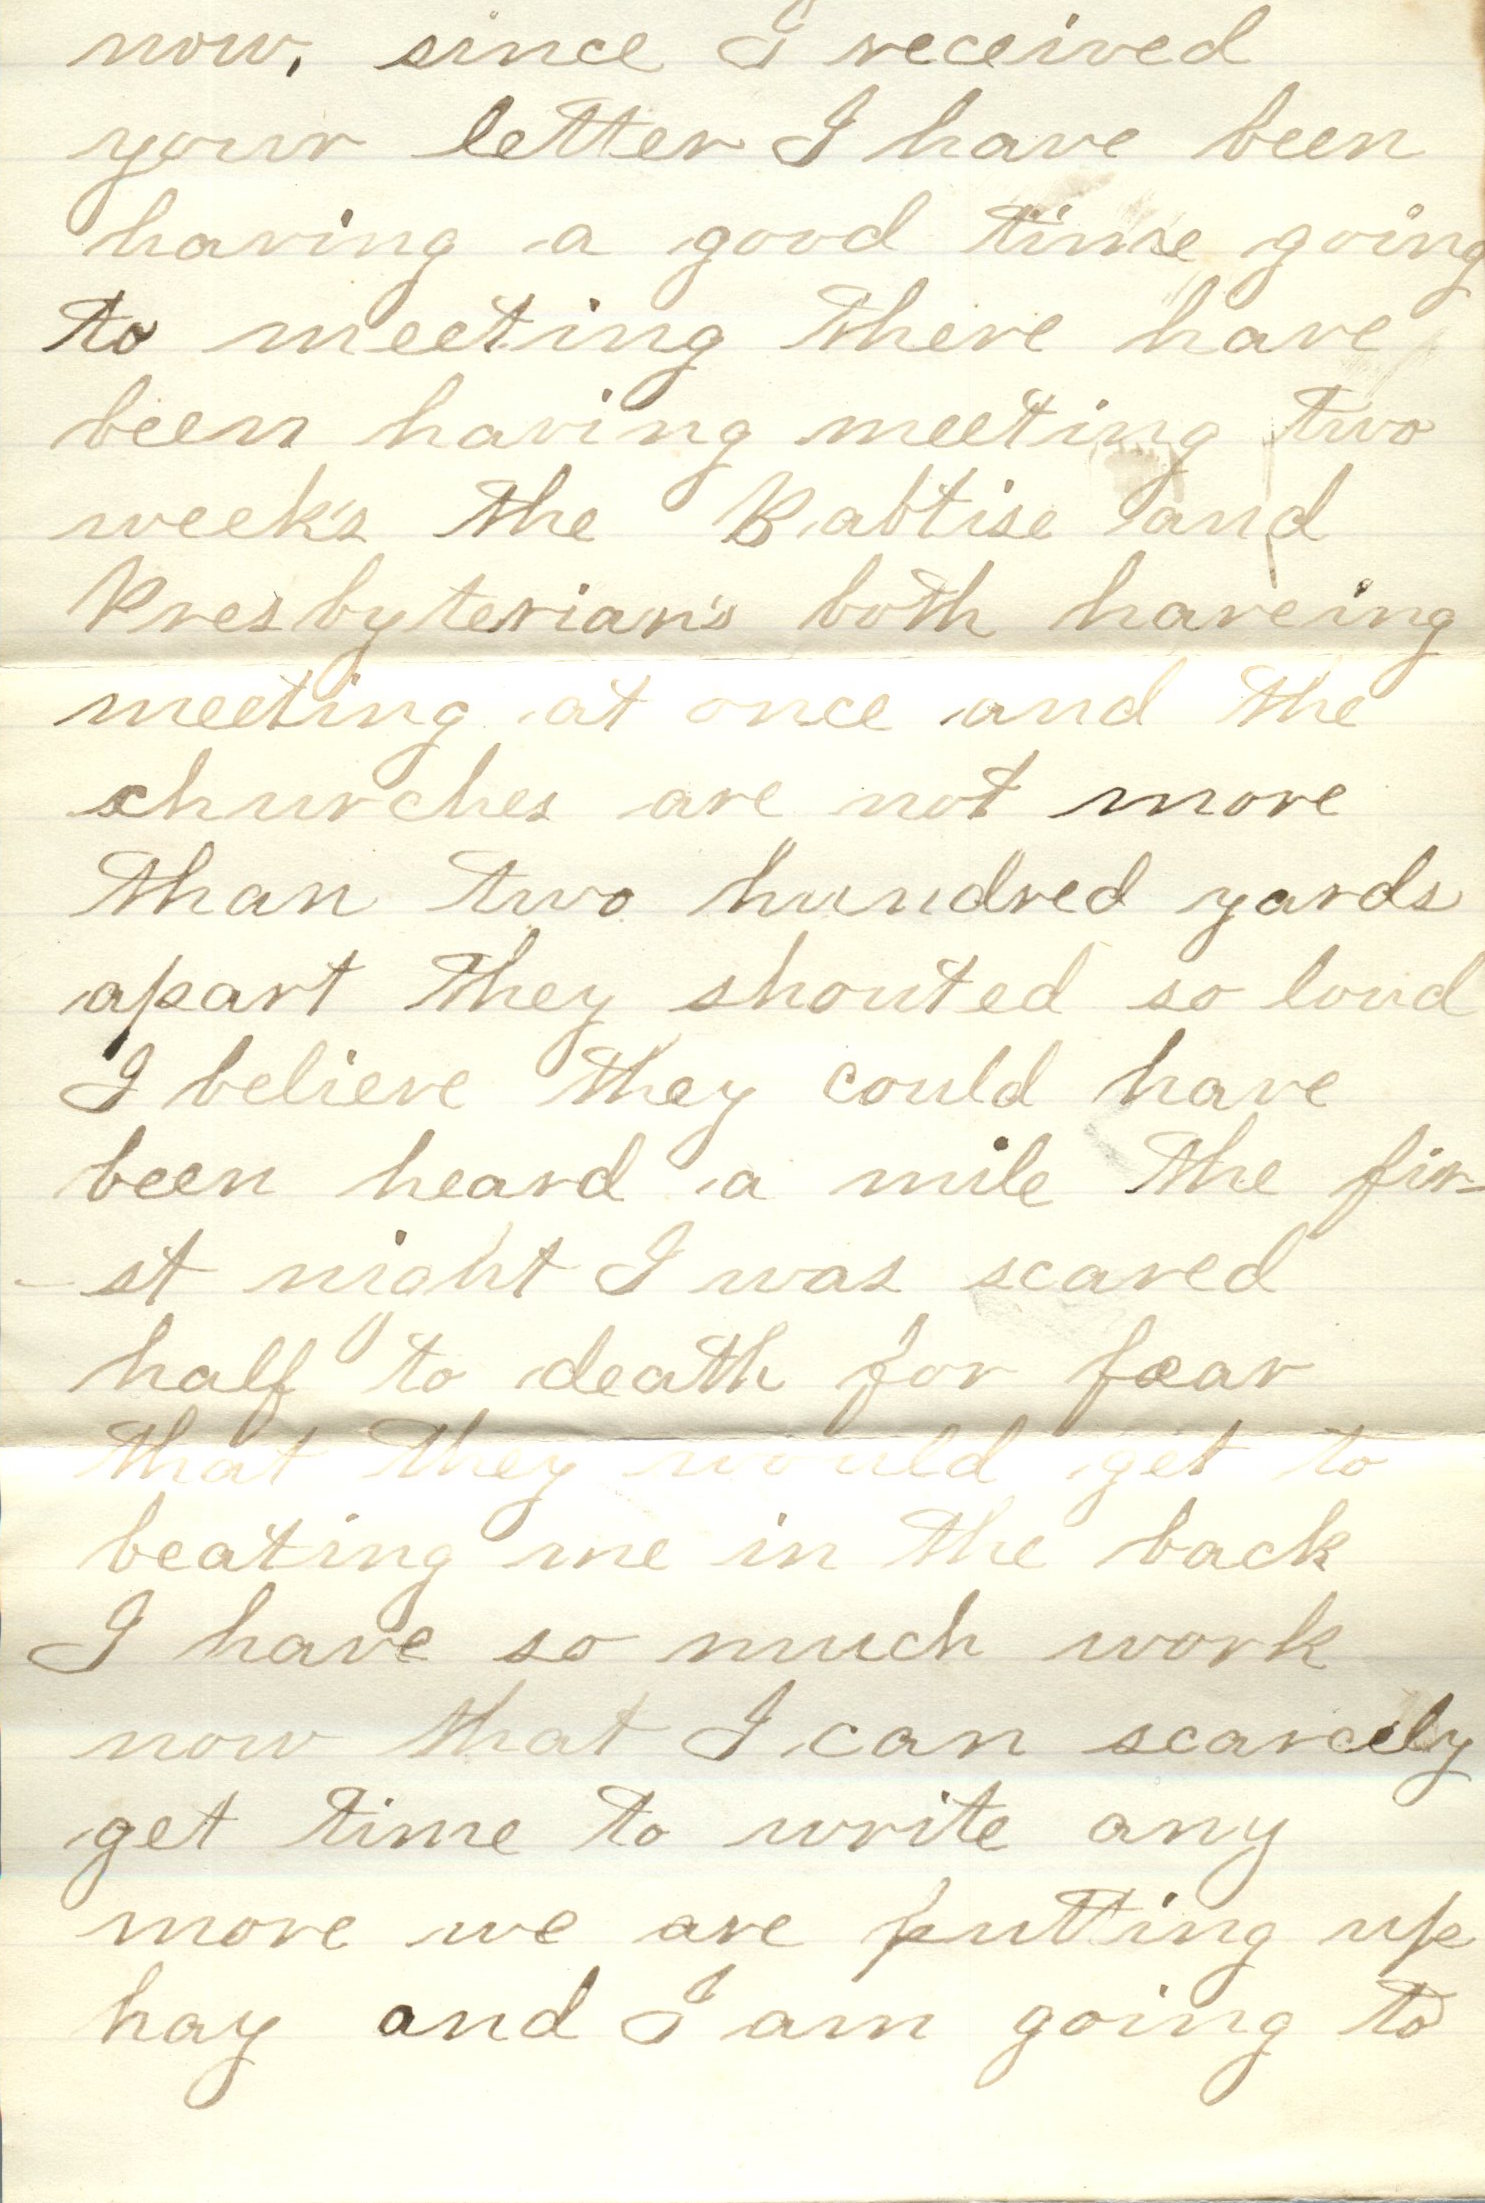 now, since I received
your letter I have been
having a good time going
to meeting there have
been having meeting two
week's the Babtise and
Presbyterian's both haveing
meeting at once and the
churches are not more
than two hundred yards
apart they shouted so loud
I believe they could have
been heard a mile the fir-
-st night I was scared
half to death for fear
that they would get to
beating me in the back
I have so much work
now that I can scarcely
get time to write any
more we are putting up
hay and I am going to